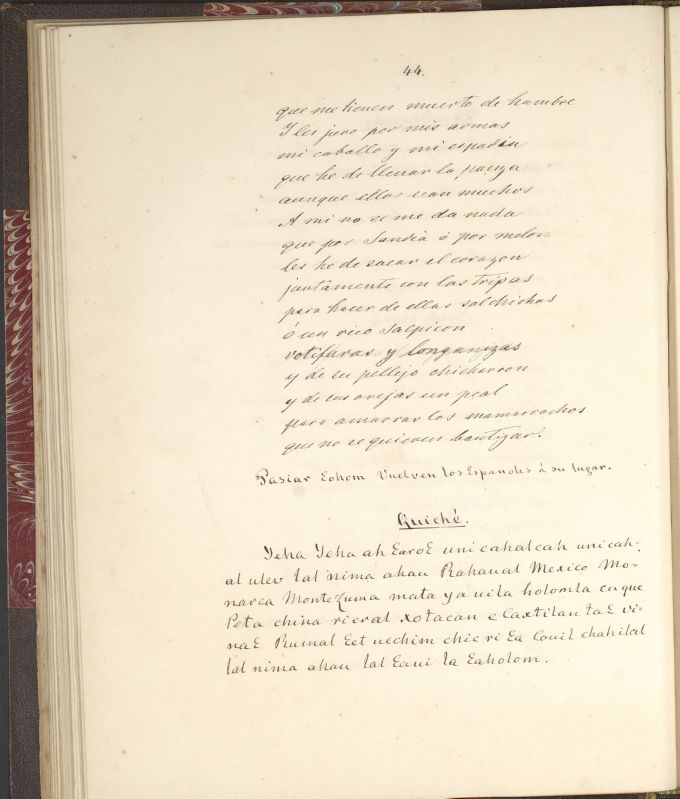 44.
que me tienen muerto de hambre
Y les juro por mis armas
mi caballo y mi espadin
que he de llenar la panza
aunque ellos sean muchos
A mi no se me da nada
que por Sandia ó por melon
les he de sacar el corazon
juntamente con las tripas
para hacer de ellas salchichas
ó un rico Salpicon
votifaras y longanizas
y de su pellejo chicharron
y de sus orejas un peal
para amarrar los mamarrachos
que no se quieren bautizar.
Pasiar Eohom Vuelven los Españoles á su lugar.
Quiché.
Yeha Yeha ah EaroE uni cahalcah uni cah-
al ulev lal nima ahau Rahaual Mexico Mo-
narca Montezuma mata ya uila holomla cuque
Peta china rieral xotacan e Caxtilan taE vi-
naE Rumal Eet uechim chic ri Ea Couil chahilal
lal nima ahau lal Eaui la Eaholom.